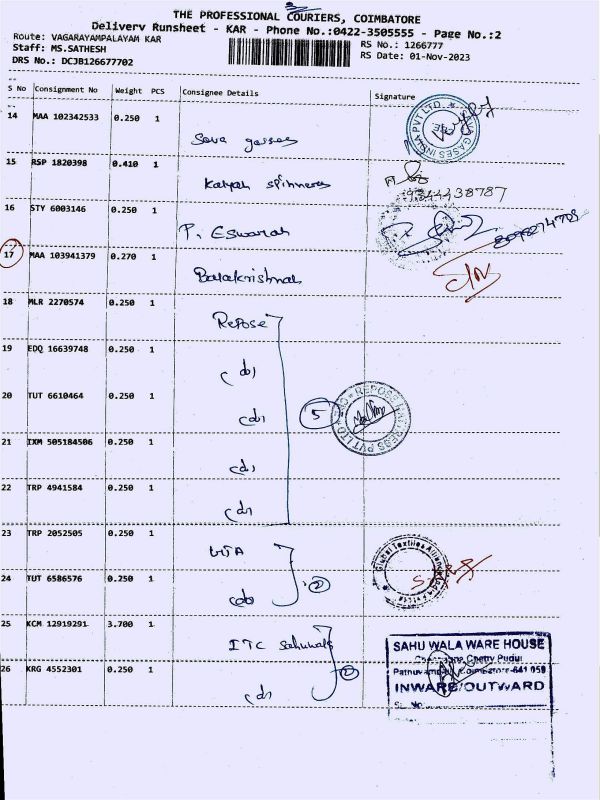 THE PROFESSIONAL COURIERS, COIMBATORE
Delivery Runsheet - KAR - Phone No.:0422-3505555 - Page No.:2
Route: VAGARAYAMPALAYAM KAR
Staff: MS.SATHESH
DRS No.: DCJB126677702
RS No.: 1266777
RS Date: 01-Nov-2023
S No Consignment No Weight PCS Consignee Details Signature
14 MAA 102342533 0.250 1
GASES INDIA PVT LTD.
15 RSP 1820398 0.410 1
Kalyan spinners
16 STY 6003146 0.250 1
P. Eswaran
17 MAA 103941379 0.270 1
Balakrishnan
18 MLR 2270574 0.250 1
Repose
19 EDQ 16639748 0.250 1
(do)
20 TUT 6610464 0.250 1
(do)
5
REPOSE MATTRESS PVT LTD
21 IXM 505184506 0.250 1
(do)
22 TRP 4941584 0.250 1
(do)
23 TRP 2052505 0.250 1
24 TUT 6586576 0.250 1
(do)
2
Global Textiles Alliance India Private
25 KCM 12919291 3.700 1
ITC Sahuwala
26 KRG 4552301 0.250 1
(do)
2
SAHU WALA WARE HOUSE
Chetty Pudur
Coimbatore-641 059
INWARE/OUTWARD
Sl. No.